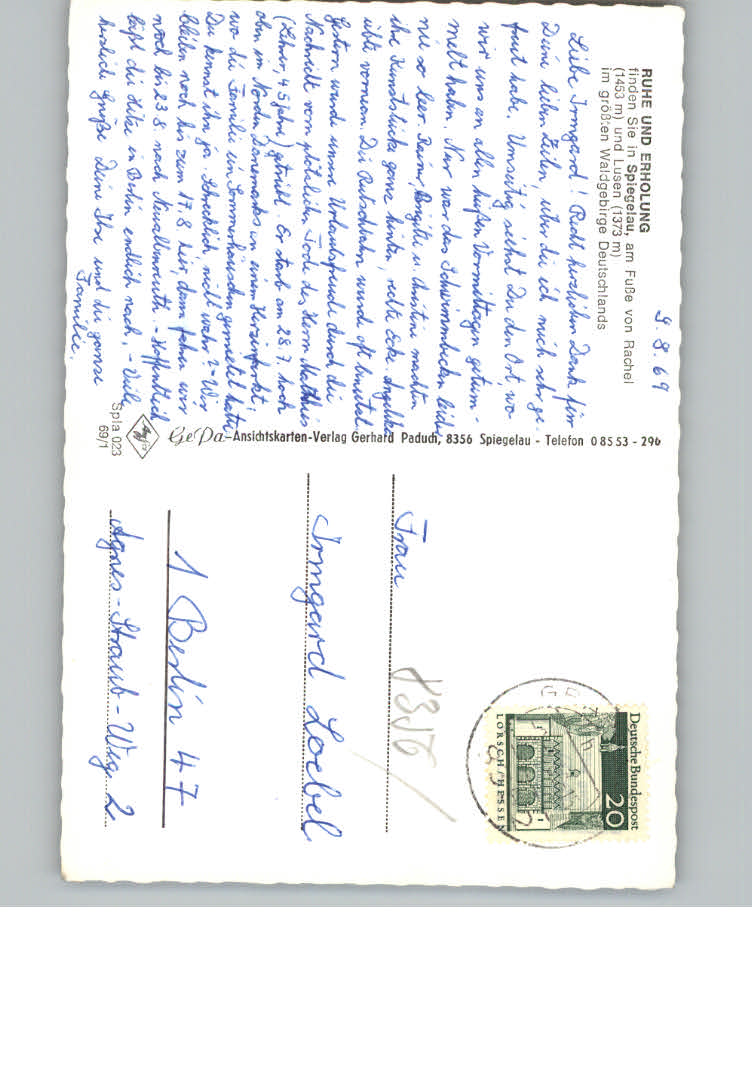 9.8.69
RUHE UND ERHOLUNG
finden Sie in Spiegelau, am Fuße von Rachel
(1453 m) und Lusen (1373 m)
im größten Waldgebirge Deutschlands
Liebe Irmgard! Recht herzlichen Dank für
Deine lieben Zeilen, über die ich mich sehr ge-
freut habe. Umseitig siehst Du den Ort, wo
wir uns an allen heißen Vormittagen getum-
melt haben. Nur war das Schwimmbecken leider
nie so leer. Rainer, Brigitte u. Christine machten
ihre Kunststücke ganz hinten, rechte Ecke. Angelika
übte vornean. Die Rutschbahn wurde oft benutzt.
Gestern wurde unsere Urlaubsfreude durch die
Nachricht vom plötzlichen Tode des Herrn Matthies
(Lehrer, 45 Jahre) getrübt. Er starb am 28.7. hoch
oben im Norden Dänemarks an einem Herzinfarkt,
wo die Familie ein Sommerhäuschen gemietet hatte.
Du kennst ihn ja. Schrecklich, nicht wahr? - Wir
bleiben noch bis zum 17.8. hier, dann fahren wir
noch bis 23.8. nach - Hoffentlich
läßt die Hitze in Berlin endlich nach. - Viele
herzliche Grüße Deine Ilse und die ganze
Familie.
GePa-Ansichtskarten-Verlag Gerhard Paduch, 8356 Spiegelau - Telefon 0 85 53 - 296
Agfa
Spla 023
69/1
Deutsche Bundespost
20
LORSCH / HESSEN
Frau
Irmgard Loebel
1 Berlin 47
Agnes-Straub-Weg 2
8356